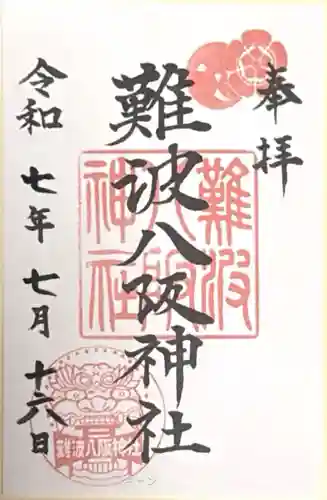 奉拝
難波八阪神社
難波
八阪
神社
令和七年七月十六日
難波八阪神社